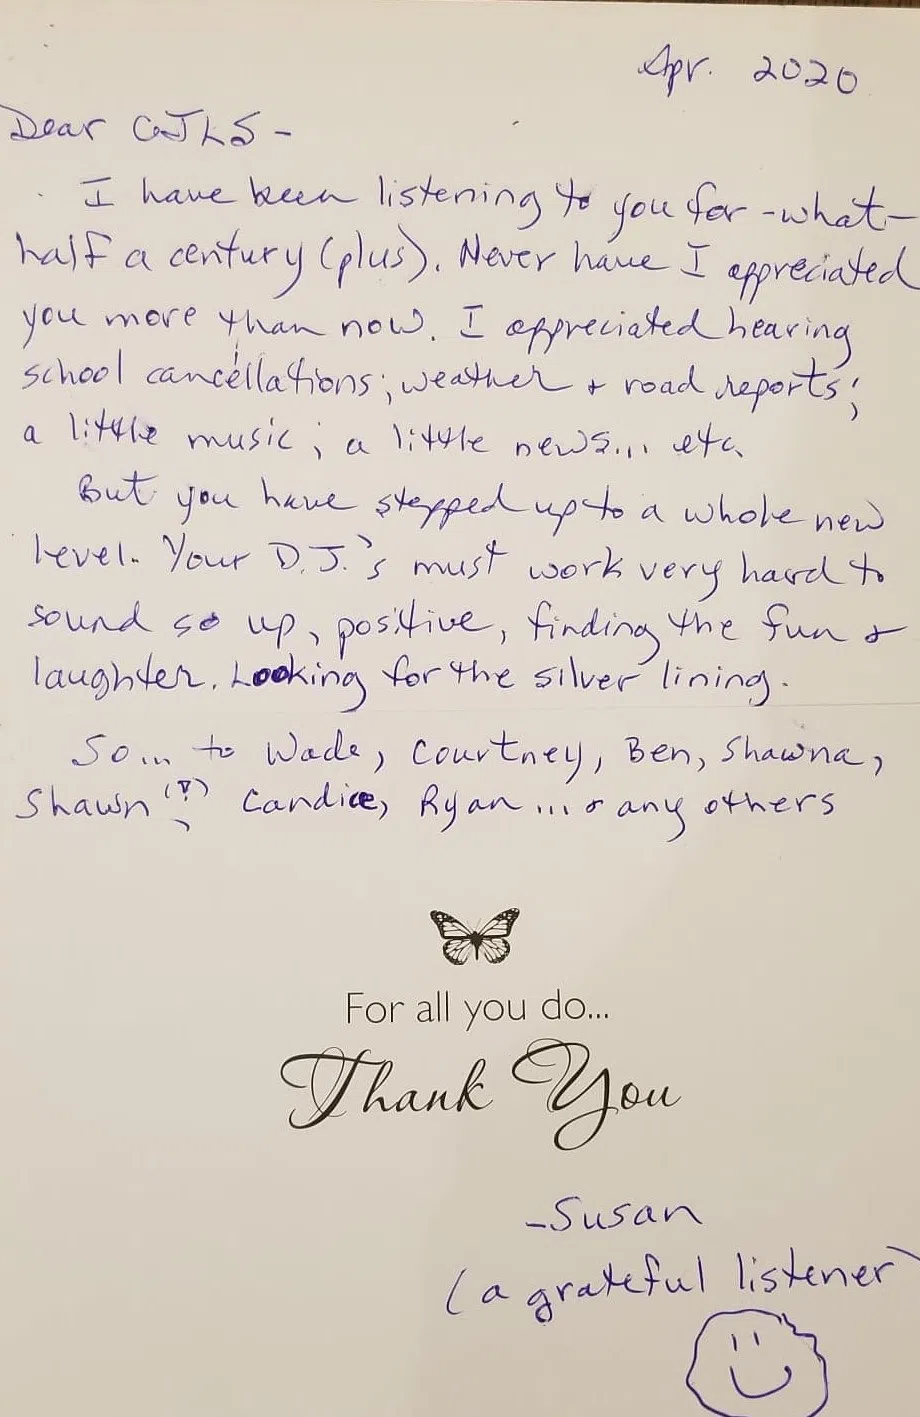 Apr. 2020
Dear CJLS -
I have been listening to you for - what -
half a century (plus). Never have I appreciated
you more than now. I appreciated hearing
school cancellations; weather + road reports;
a little music; a little news... etc.
But you have stepped up to a whole new
level. Your D.J.'s must work very hard to
sound so up, positive, finding the fun +
laughter. Looking for the silver lining.
So... to Wade, Courtney, Ben, Shawna,
Shawn (?), Candice, Ryan ... + any others
For all you do...
Thank You
- Susan
(a grateful listener)